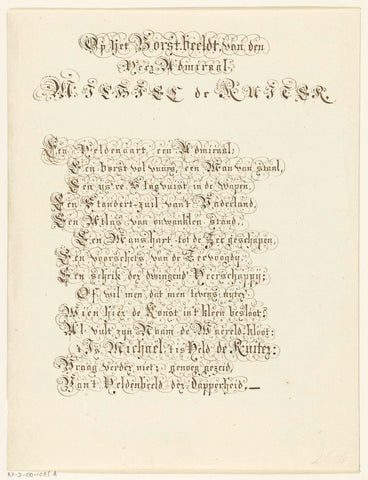 Op het Borstbeeldt, van den
Heer Admiraal,
MICHIEL de RUITER.
Een Heldenaart, een Admiraal;
Een borst vol vuurs, een Man van staal,
Een ys're Slagvuist in de Wapen,
Een Standert-zuil van't Vaderland,
Een Atlas van onwankl'en stand.
Een Manshart tot de Zee geschapen,
Een voorschets van de Zeevoogdy
Een schrik der dwingend Heerschappij;
Of wil men, dat men tevens uyte
Wien hier de Konst in't kleen besloot?
Al vult zyn Naam de Waereld-kloot:
't Is Michael, 't is Held de Ruiter:
Vraag verder niet; genoeg gezeid,
Van 't Heldenbeeld der Dapperheid.